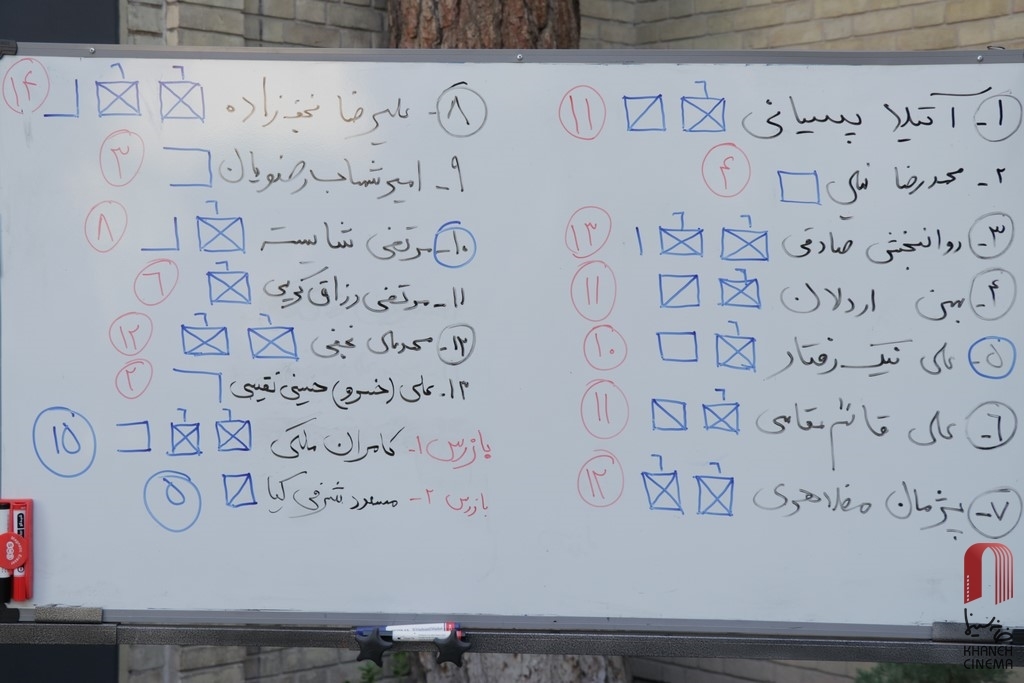 ۱- آتیلا پسیانی ۶ ۱۱
۲- محمدرضا ۴
۳- صادقی ۶ ۶ ۱ ۱۳
۴- بهمن اردلان ۶ ۱۱
۵- علی نیک رفتار ۶ ۱۰
۶- علی قائم مقامی ۶ ۱۱
۷- پژمان مظاهری ۶ ۶ ۱۲
۸- علیرضا نجف زاده ۶ ۶ ۱۴
۹- امیر شهاب رضویان ۳
۱۰- مرتضی شایسته ۶ ۸
۱۱- مرتضی رزاق کریمی ۶ ۶
۱۲- محمدعلی نجفی ۶ ۶ ۱۲
۱۳- علی (خسرو) حسینی نقیبی ۲
بازرس ۱- کامران ملکی ۶ ۶ ۱۵
بازرس ۲- مسعود شرفی کیا ۵
خانه سینما
KHANEH
CINEMA